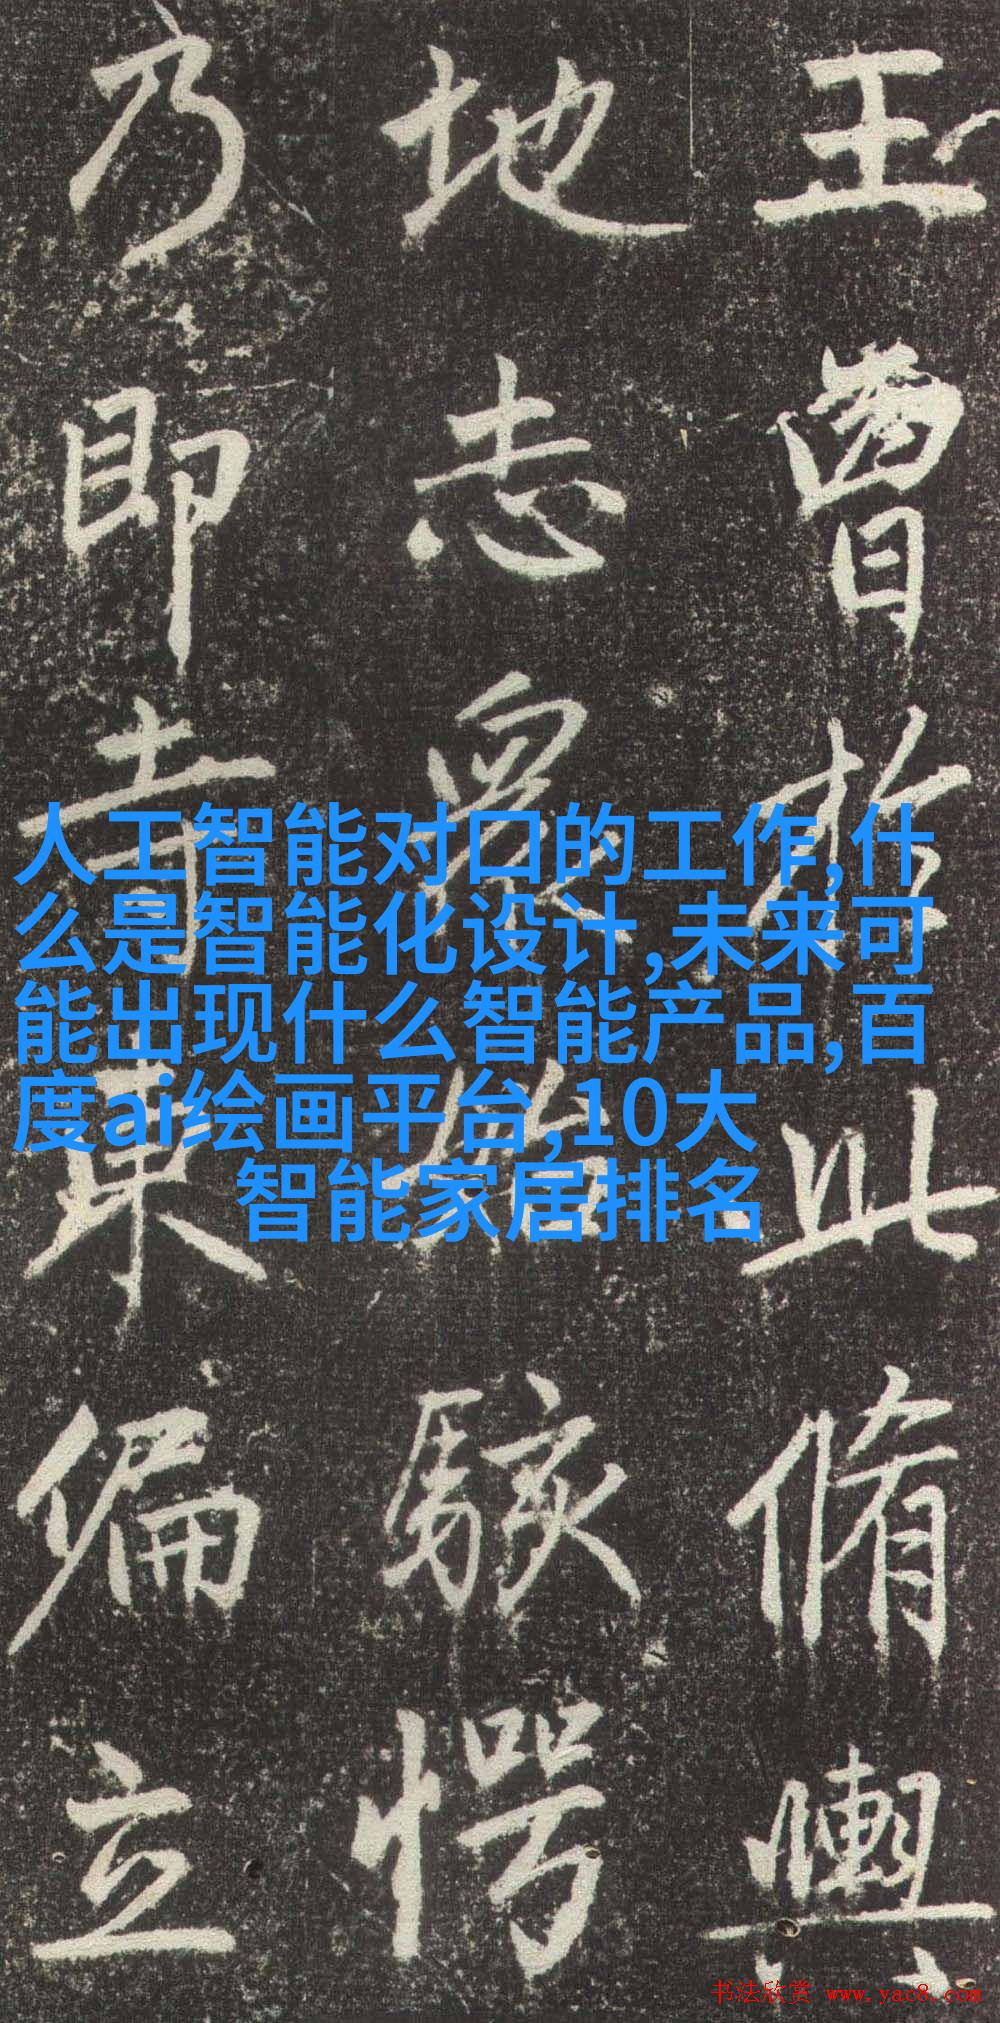 王曾於此脩輿
地志始駭愕
乃即寺東偏立
人工智能对口的工作,什
么是智能化设计,未来可
能出现什么智能产品,百
度ai绘画平台,10大
智能家居排名
书法欣赏 www.yac8.com